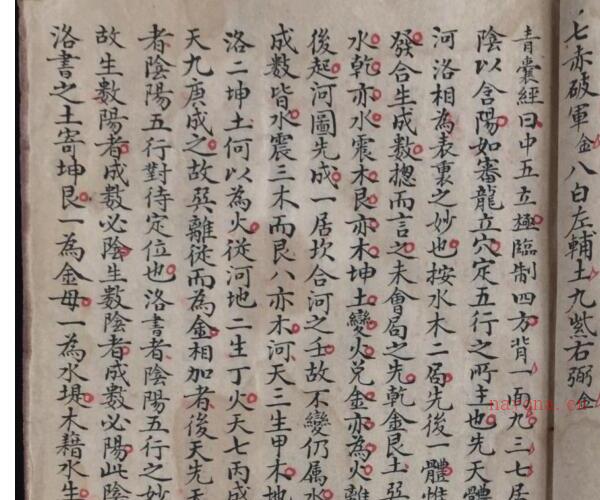 七赤破軍金八白左輔土九紫右弼金
青囊經曰中五立極臨制四方背一面九三七居
陰以含陽如審龍立穴定五行之所主也先天體
河洛相為表裏之妙也按水木二局先後一體惟
發合生成數摠而言之未會局之先乾金艮土巽
水乾亦水震木艮亦木坤土變火兌金亦為火離
後起河圖先成一居坎合河之壬故不變仍属水
成數皆水震三木而艮八亦木河天三生甲木地
洛二坤土何以為火從河地二生丁火天七丙成
天九庚成之故巽離從而為金相加者後天先天
者陰陽五行對待定位也洛書者陰陽五行之妙
故生數陽者成數必陰生數陰者成數必陽此陰
洛書之土寄坤艮一為金母一為水堤木藉水生
nayona.cn